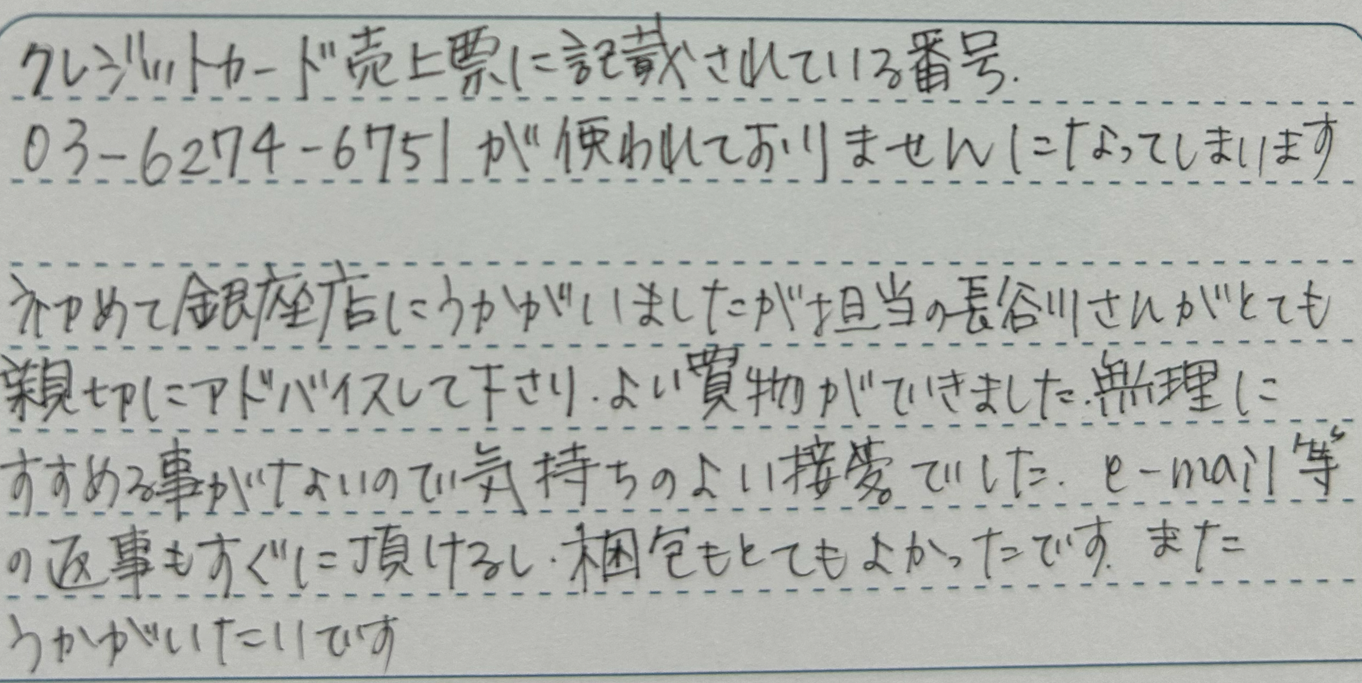 クレジットカード売上票に記載されている番号.
03-6274-6751が使われておりませんになってしまいます
初めて銀座店にうかがいましたが担当の長谷川さんがとても
親切にアドバイスして下さり.よい買物ができました.無理に
すすめる事がないので気持ちのよい接客でした. e-mail等
の返事もすぐに頂けるし.梱包もとてもよかったです. また
うかがいたいです